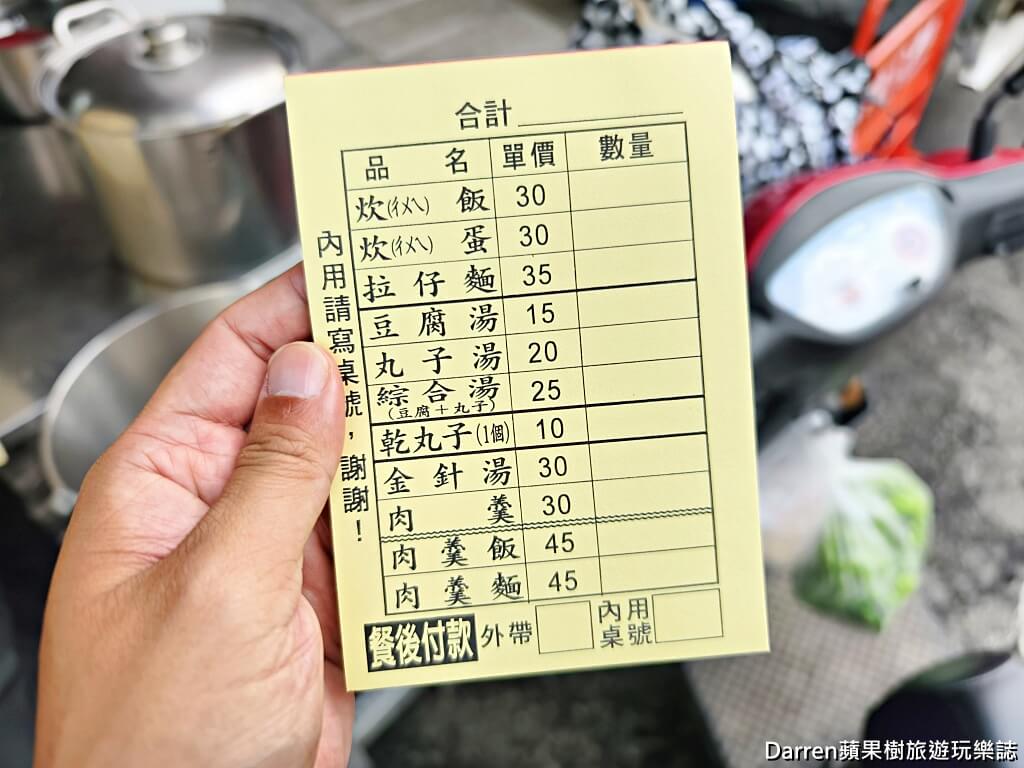 合計
品名 單價 數量
炊(ㄔㄨㄟ)飯 30
炊(ㄔㄨㄟ)蛋 30
拉仔麵 35
豆腐湯 15
丸子湯 20
綜合湯 25
(豆腐+丸子)
乾丸子(1個) 10
金針湯 30
肉羹 30
肉羹飯 45
肉羹麵 45
餐後付款 外帶 內用桌號
內用請寫桌號,謝謝!
Darren蘋果樹旅遊玩樂誌